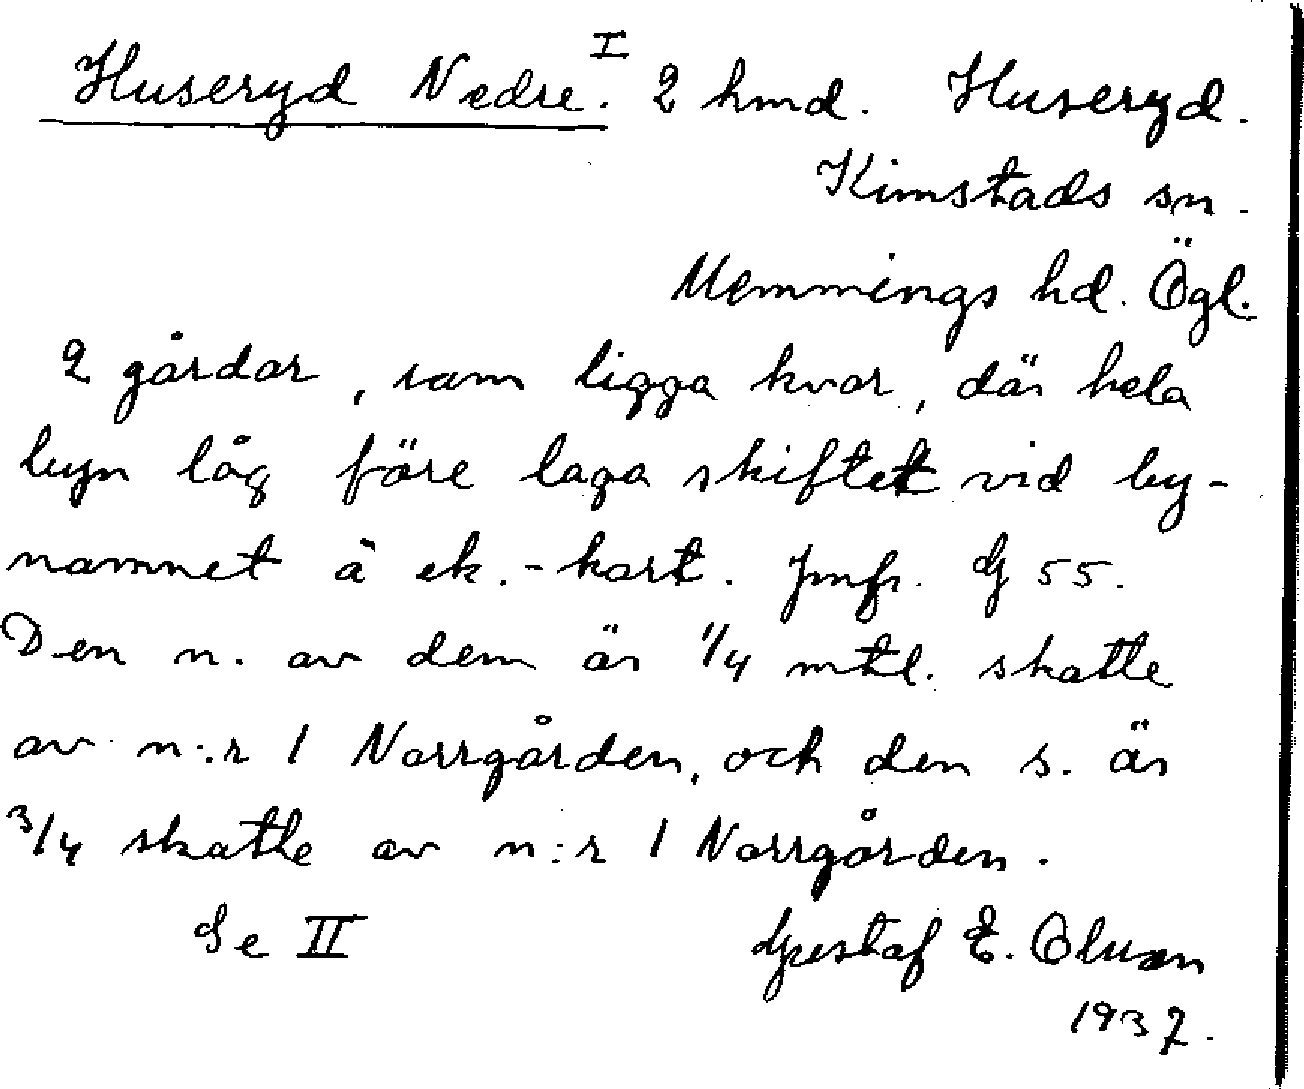 Huseryd Nedre. I 2 hmd. Huseryd.
Kimstads sn.
Memmings hd. Ögl.
2 gårdar, som ligga kvar, där hela
byn låg före laga skiftet vid by-
namnet å ek.-kart. Jmfr. G 55.
Den n. av dem är 1/4 mtl. skatte
av n:r 1 Norrgården, och den s. är
3/4 skatte av n:r 1 Norrgården.
Se II Gustaf E. Olsson
1937.